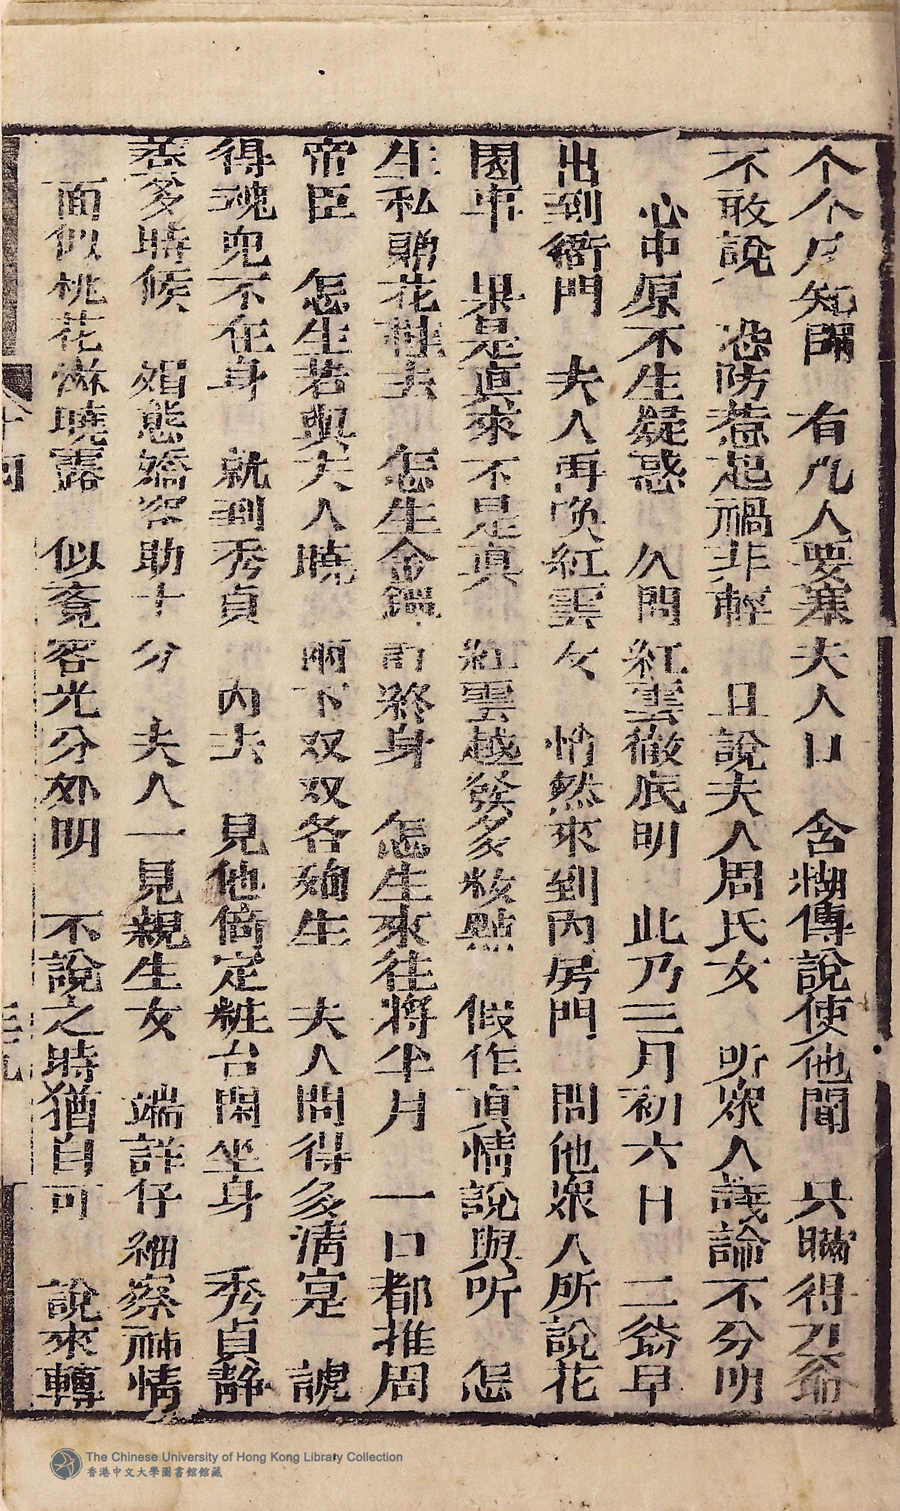 个个尽知聞　有凡人要塞夫人口　含糊傳說使他聞　只瞞得刀爺
不敢說　恐防惹起禍非輕　且說夫人周氏女　听衆人議論不分明
心中原不生疑惑　久問紅雲徹底明　此乃三月初六日　二爺早
出到衙門　夫人再唤紅雲女　悄然來到內房門　問他衆人所說花
園事　果是真來不是真　紅雲越發多粧點　假作真情說與听　怎
生私贈花鞋去　怎生金鐲訂終身　怎生來往將半月　一口都推周
帝臣　怎生若與夫人曉　兩下双双各殉生　夫人問得多清寔　諕
得魂兒不在身　就到秀貞內去　見他倚定粧台閑坐身　秀貞靜
養多時候　媚態嬌容助十分　夫人一見親生女　端詳仔細察神情
面似桃花淋曉露　似覓容光分外明　不說之時猶自可　說來轉
The Chinese University of Hong Kong Library Collection
香港中文大學圖書館館藏